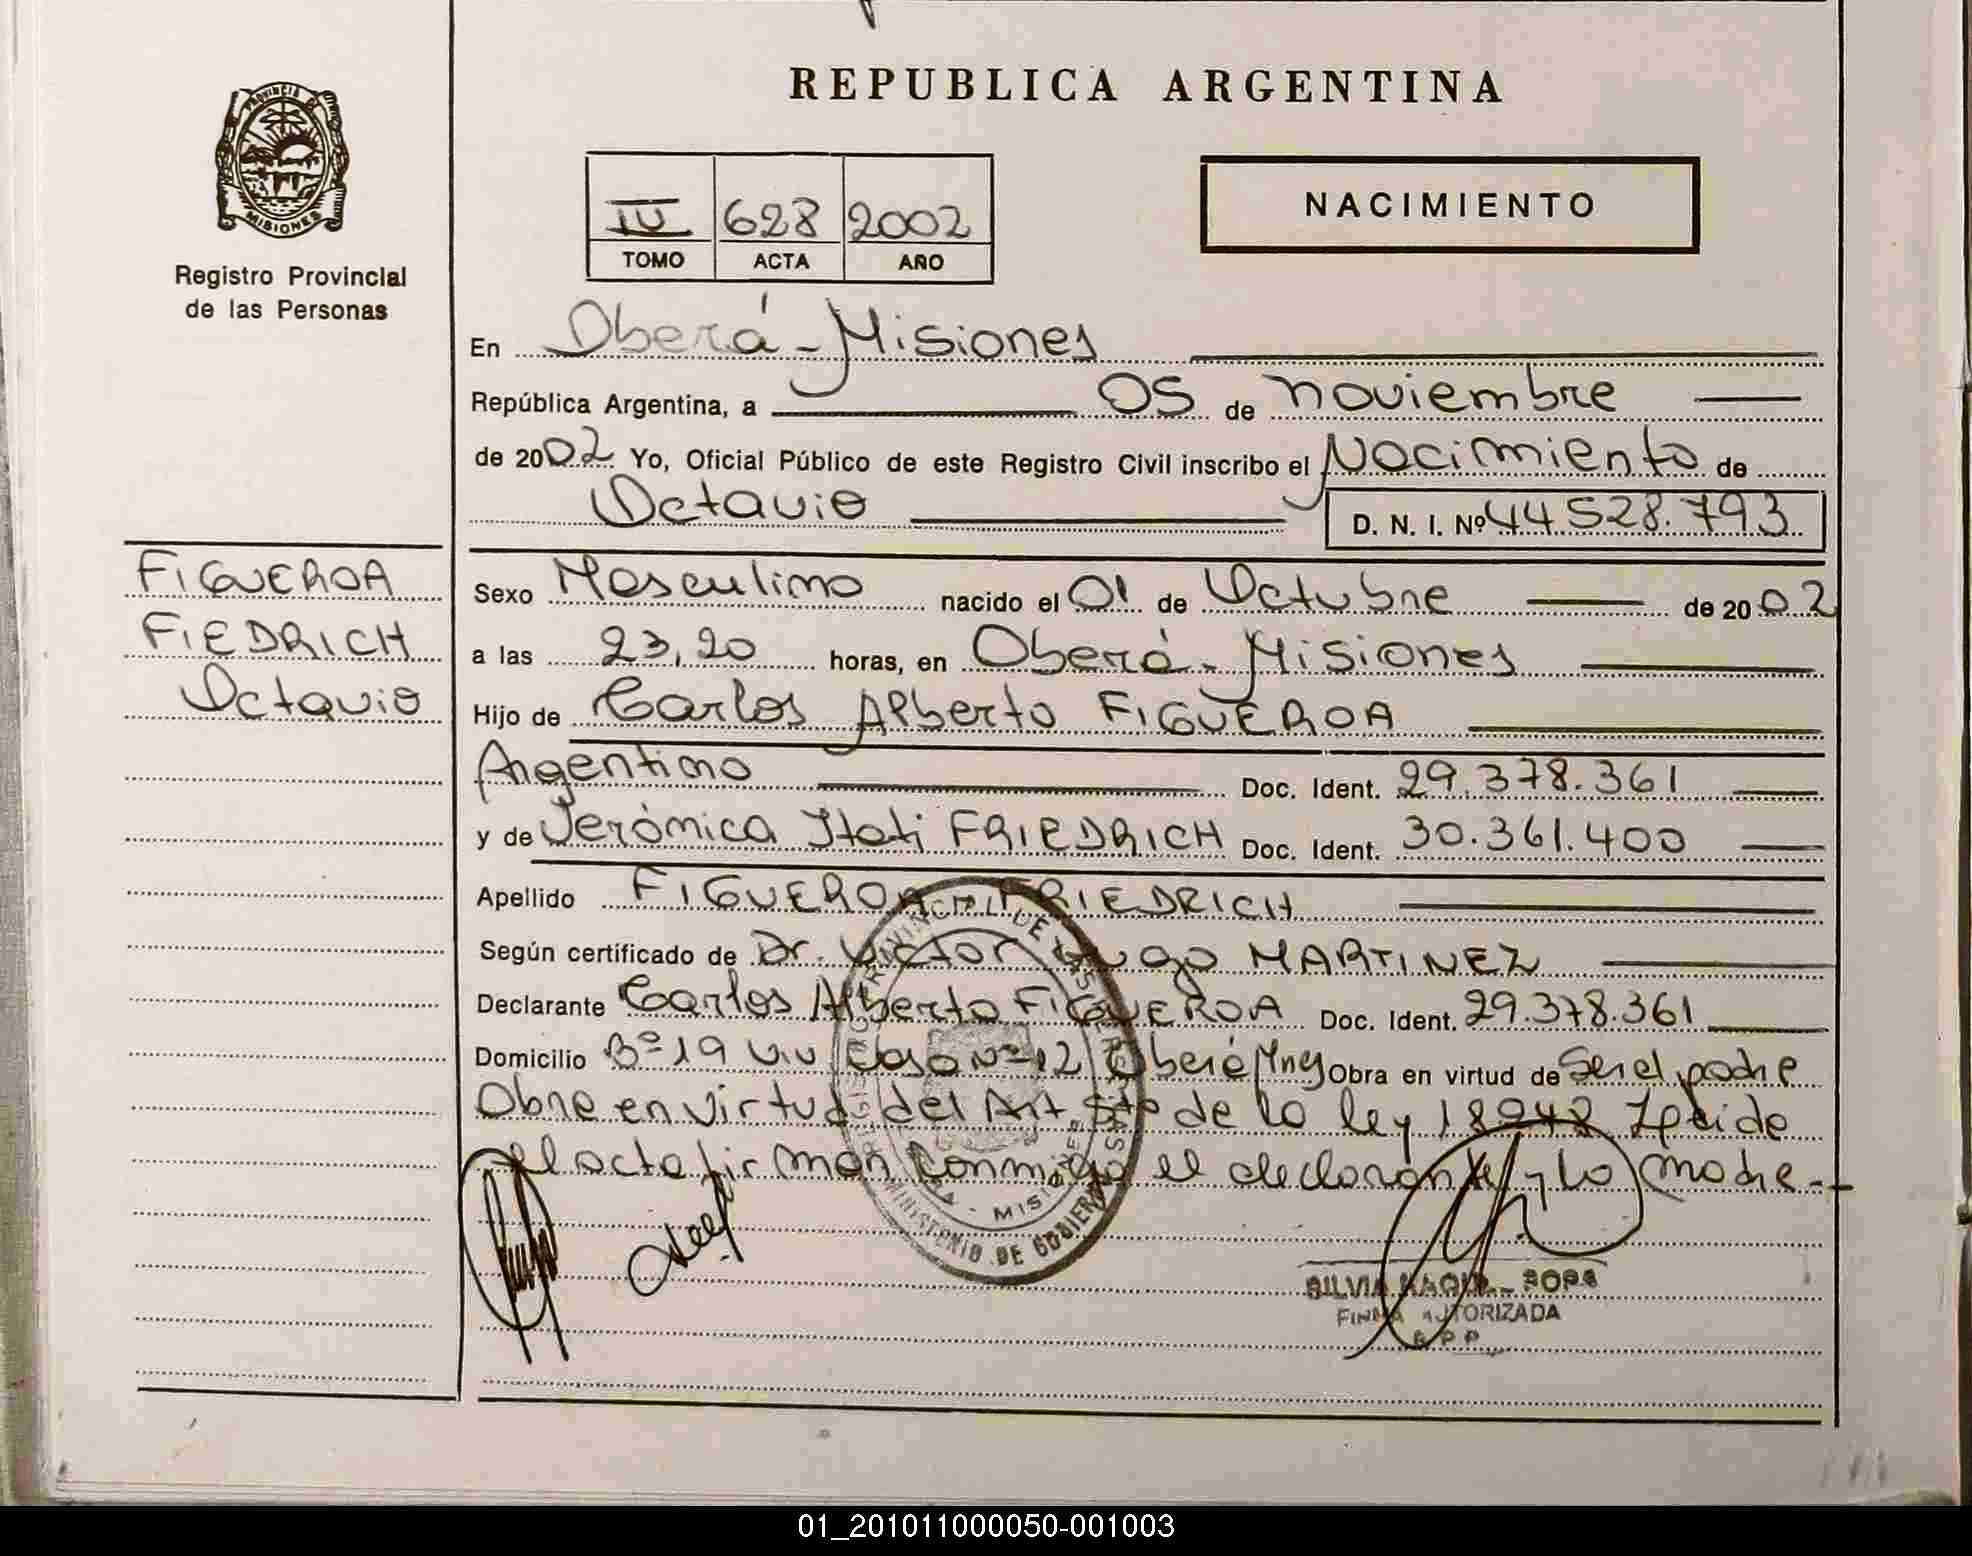 REPUBLICA ARGENTINA
PROVINCIA DE
MISIONES
Registro Provincial
de las Personas
IV 628 2002
TOMO ACTA AÑO
NACIMIENTO
En Oberá - Misiones
República Argentina, a 05 de noviembre
de 2002 Yo, Oficial Público de este Registro Civil inscribo el Nacimiento de
Octavio D. N. I. Nº 44.528.793
FIGUEROA
FIEDRICH
Octavio
Sexo Masculino nacido el 01 de Octubre de 2002
a las 23,20 horas, en Oberá - Misiones
Hijo de Carlos Alberto FIGUEROA
Argentino Doc. Ident. 29.378.361
y de Verónica Itati FRIEDRICH Doc. Ident. 30.361.400
Apellido FIGUEROA FRIEDRICH
Según certificado de Dr. Victor Hugo MARTINEZ
Declarante Carlos Alberto FIGUEROA Doc. Ident. 29.378.361
Domicilio Bº 19 Viv Casa Nº 12 Oberá Mnes Obra en virtud de Ser el padre
Obre en virtud del Art 5to de la ley 18248 Leida
el acta firman conmigo el declarante y la madre -
MINISTERIO DE GOBIERNO
MISIONES
SILVIA RAQUEL
FIRMA AUTORIZADA
01_201011000050-001003